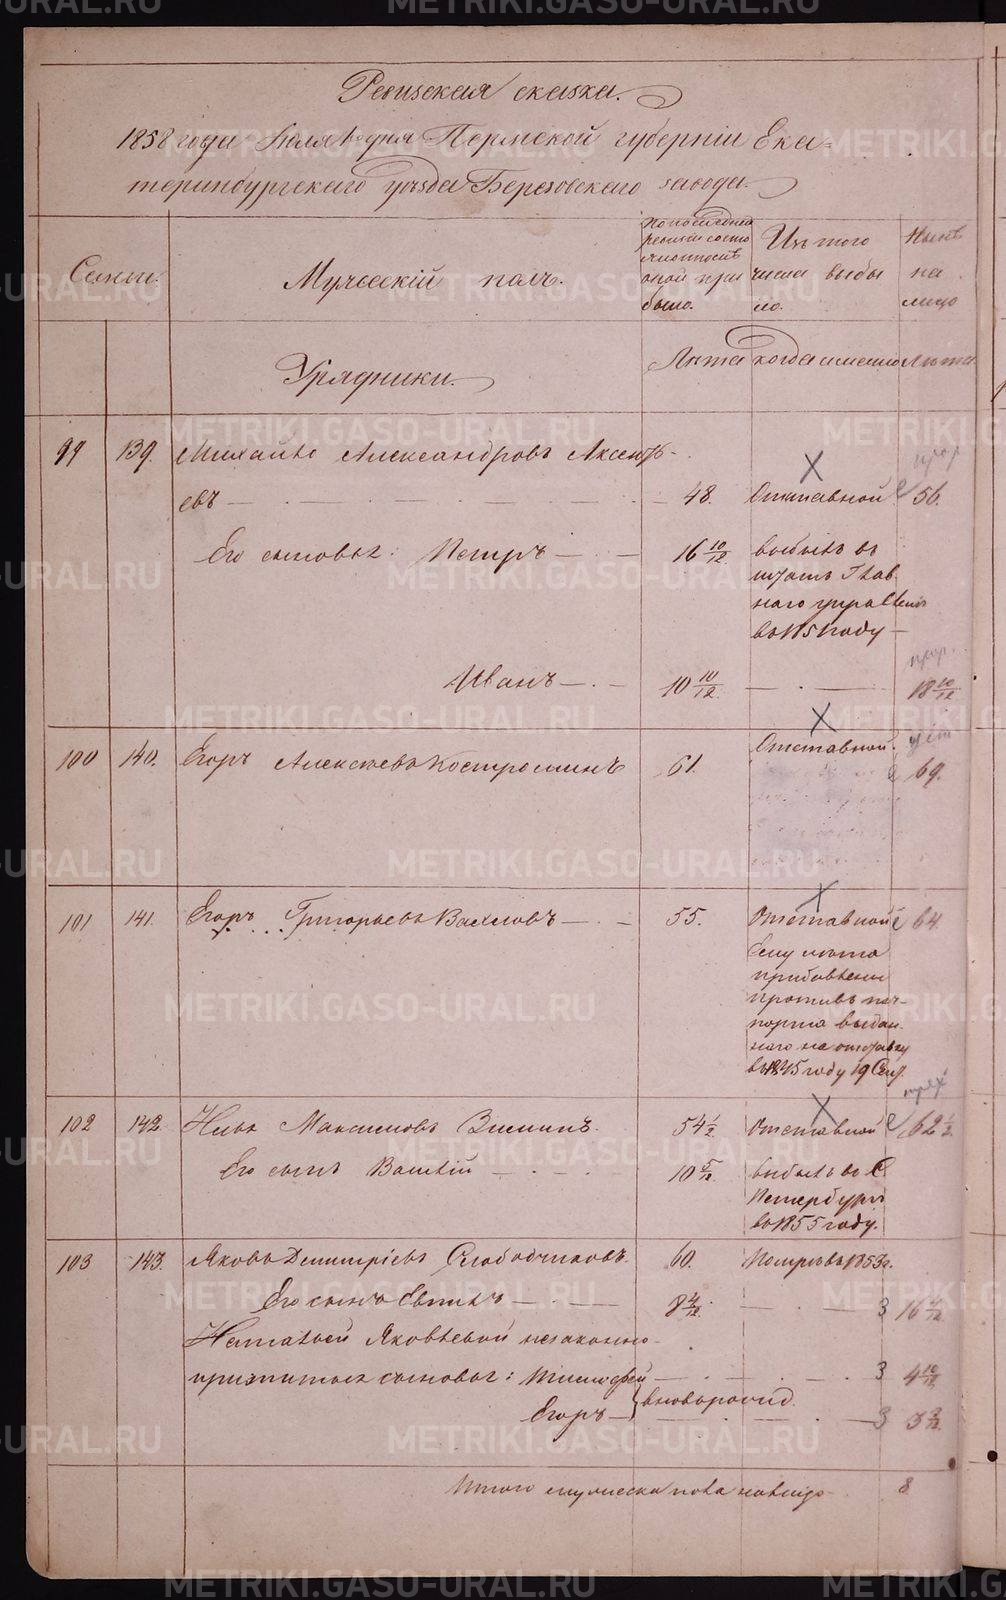 Ревизская сказка.
1858 года Июля дня Пермской губерніи Ека-
теринбургскаго уѣзда Березовскаго завода.
Семьи.
Мужескій полъ.
По последней
ревизіи состо
яло и после
оной при
было.
Изъ того
числа выбы
ло.
Нынѣ
на
лицо
Урядники.
Лѣта
когда именно
лѣта
99 139. Михайло Александровъ Аксенть-
евъ 48. Отставной 56.
Его сыновья: Петръ 16 10/12 выбылъ въ
штатъ Глав
наго управленія
въ 1851 году
Иванъ 10 10/12 18 10/12
100 140. Егоръ Алексѣевъ Костроминъ 61. Отставной. 69.
101 141. Егоръ Григорьевъ Вахловъ 55. Отставной 64.
Ему лѣта
прибавлены
противъ пас-
порта выдан
наго на отставку
въ 1845 году 19 Сент.
102 142. Илья Максимовъ Зиминъ. 54 1/2 Отставной 62 1/2
Его сынъ Василій 10 5/12. выбылъ въ С
Петербургъ
въ 1855 году.
103 143. Яковъ Дмитріевъ Слободчиковъ. 60. Померъ въ 1853 г.
Его сынъ 8 4/12. 3 16 4/12
Натальей Яковлевой незаконно-
прижитыя сыновья: Тимофей 3 4 10/12
Егоръ вноворожд. 3 3 2/12
Итого мужеска пола налицо 8
METRIKI.GASO-URAL.RU